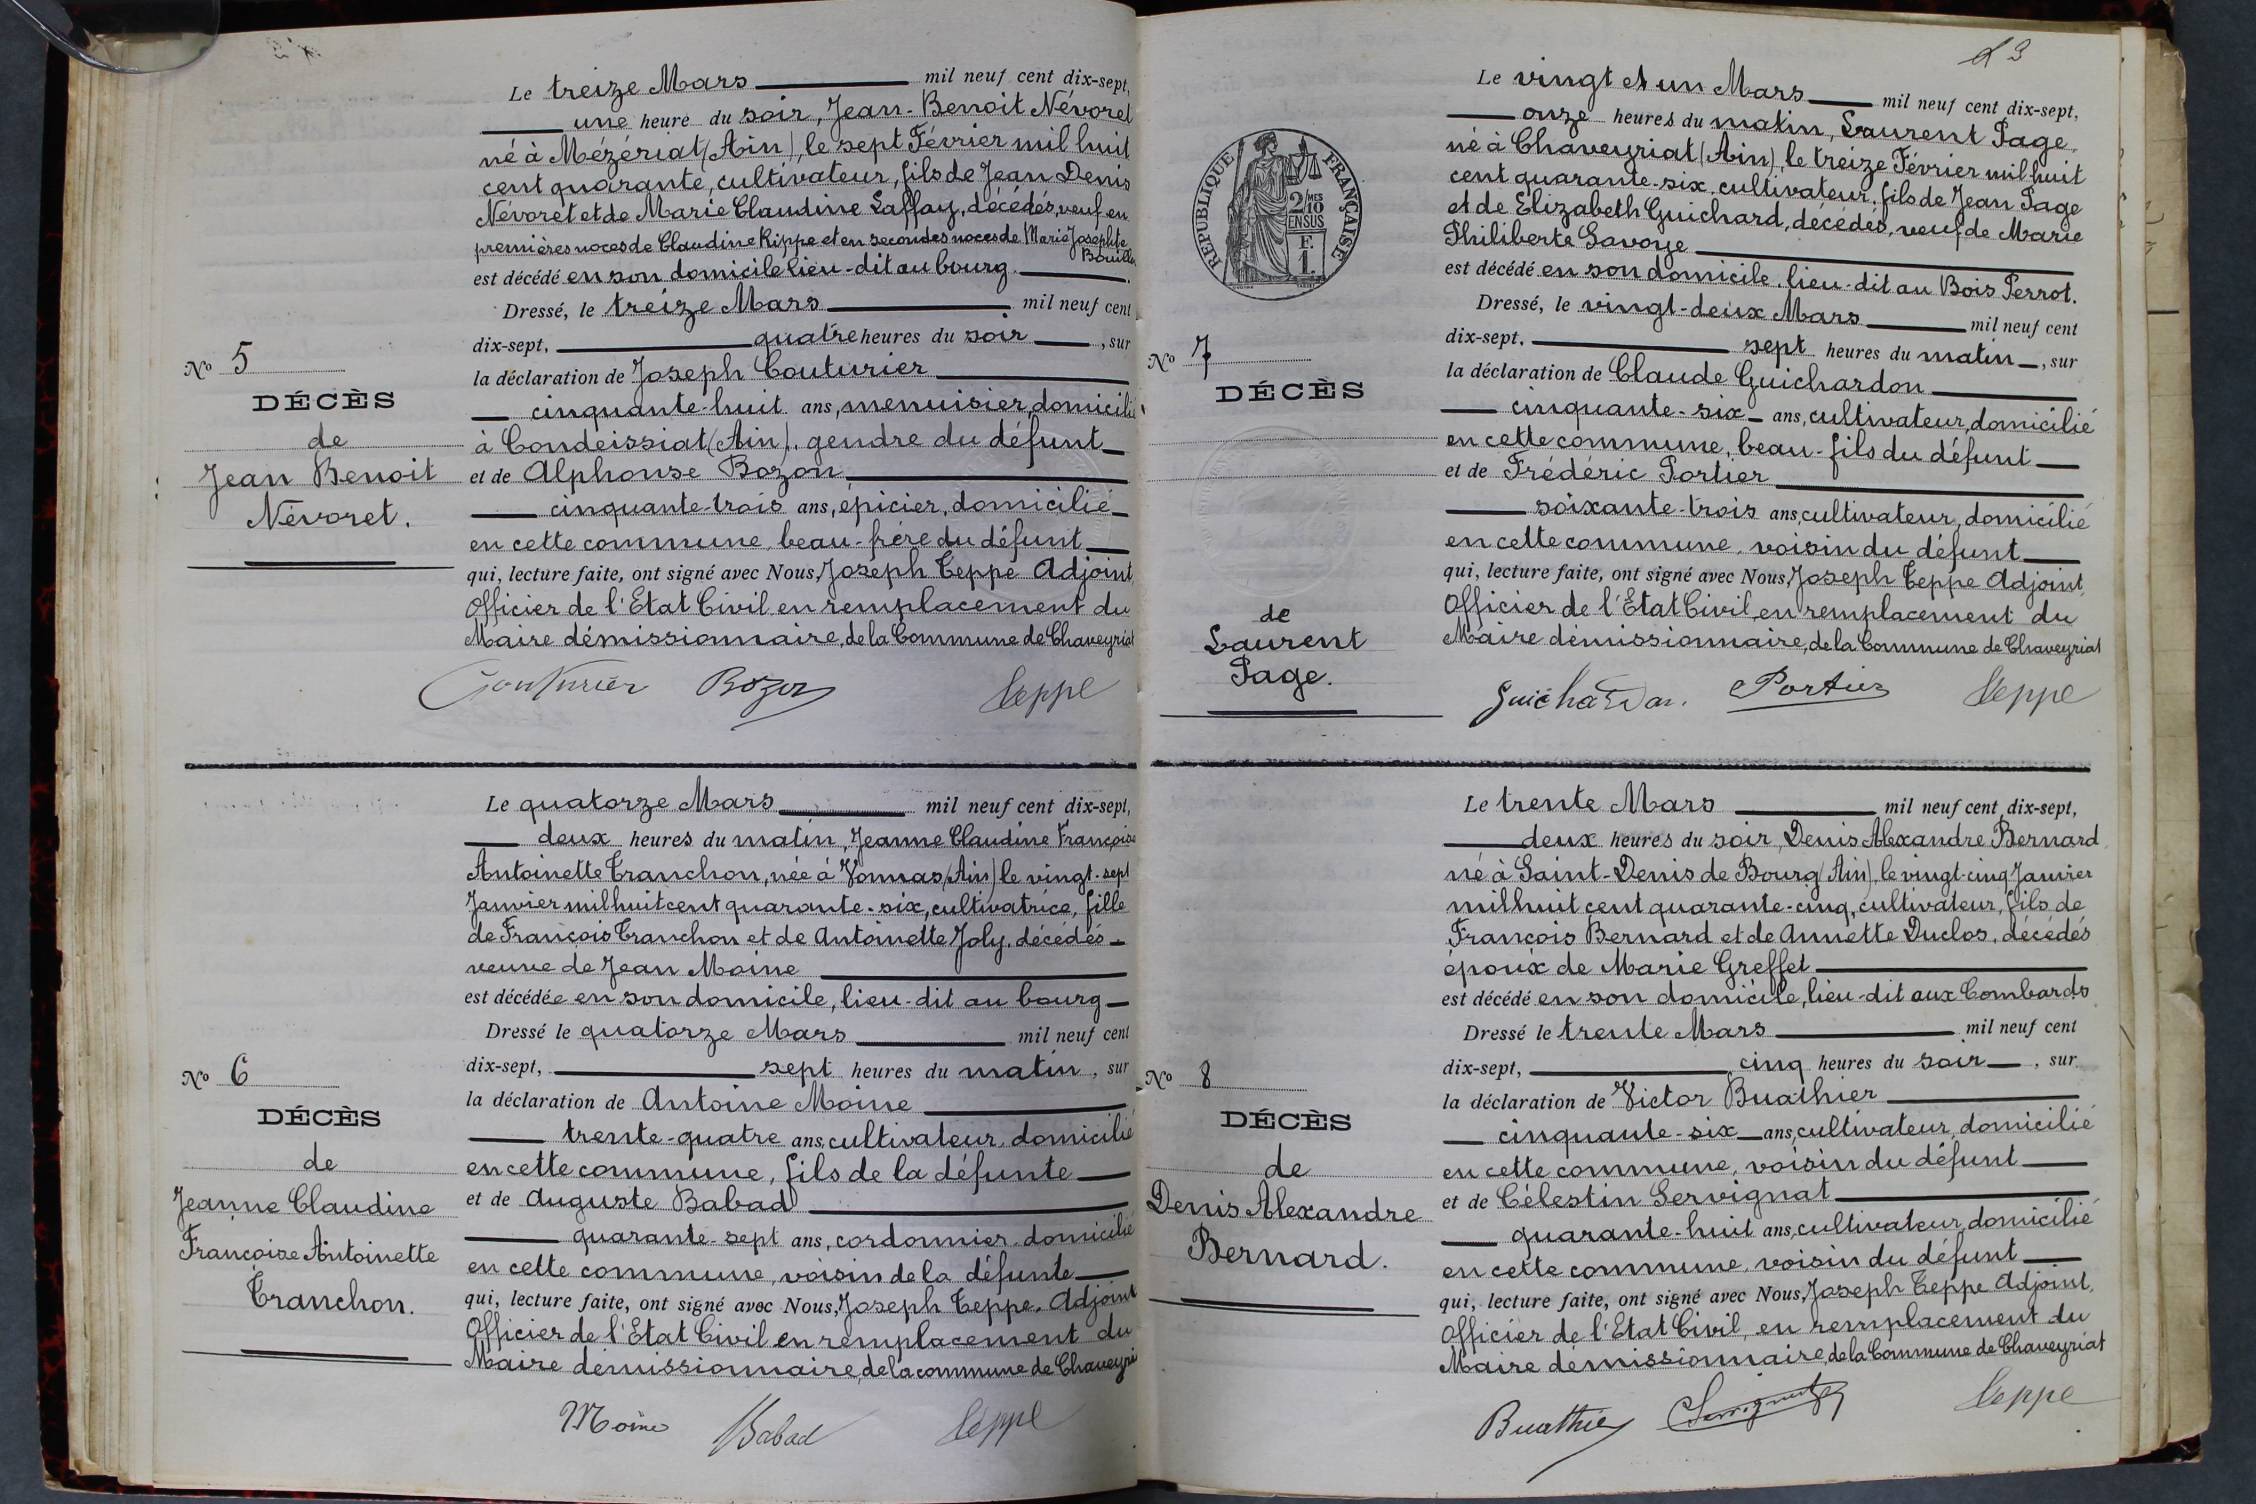 Le treize Mars mil neuf cent dix-sept,
une heure du soir, Jean-Benoit Névoret
né à Mézériat (Ain), le sept Février mil huit
cent quarante, cultivateur, fils de Jean Denis
Névoret et de Marie Claudine Laffay, décédés, veuf en
premières noces de Claudine Rippe et en secondes noces de Marie Josephte
Bouiller
est décédé en son domicile lieu-dit au bourg.
Dressé, le treize Mars mil neuf cent
dix-sept, quatre heures du soir, sur
la déclaration de Joseph Couturier
cinquante-huit ans, menuisier, domicilié
à Condeissiat (Ain), gendre du défunt
et de Alphonse Bozon
cinquante-trois ans, épicier, domicilié
en cette commune, beau-frère du défunt
qui, lecture faite, ont signé avec Nous, Joseph Teppe Adjoint
Officier de l'Etat Civil en remplacement du
Maire démissionnaire, de la Commune de Chaveyriat
Couturier Bozon Teppe
No 5
DÉCÈS
de
Jean Benoit
Névoret.
Le quatorze Mars mil neuf cent dix-sept,
deux heures du matin, Jeanne Claudine Françoise
Antoinette Tranchon, née à Vonnas (Ain) le vingt-sept
Janvier mil huit cent quarante-six, cultivatrice, fille
de François Tranchon et de Antoinette Joly, décédés
veuve de Jean Moine
est décédée en son domicile, lieu-dit au bourg
Dressé le quatorze Mars mil neuf cent
dix-sept, sept heures du matin, sur
la déclaration de Antoine Moine
trente-quatre ans, cultivateur, domicilié
en cette commune, fils de la défunte
et de Auguste Babad
quarante-sept ans, cordonnier, domicilié
en cette commune, voisin de la défunte
qui, lecture faite, ont signé avec Nous, Joseph Teppe, Adjoint
Officier de l'Etat Civil en remplacement du
Maire démissionnaire, de la commune de Chaveyri
Moine Babad Teppe
No 6
DÉCÈS
de
Jeanne Claudine
Françoise Antoinette
Tranchon.
Le vingt et un Mars mil neuf cent dix-sept,
onze heures du matin, Laurent Page,
né à Chaveyriat (Ain), le treize Février mil huit
cent quarante-six, cultivateur, fils de Jean Page
et de Elizabeth Guichard, décédés, veuf de Marie
Philiberte Savoye
est décédé en son domicile, lieu-dit au Bois Perrot.
Dressé, le vingt-deux Mars mil neuf cent
dix-sept, sept heures du matin, sur
la déclaration de Claude Guichardon
cinquante-six ans, cultivateur, domicilié
en cette commune, beau-fils du défunt
et de Frédéric Portier
soixante-trois ans, cultivateur, domicilié
en cette commune, voisin du défunt
qui, lecture faite, ont signé avec Nous, Joseph Teppe Adjoint,
Officier de l'Etat Civil, en remplacement du
Maire démissionnaire, de la Commune de Chaveyriat
Guichardon. Portier Teppe
RÉPUBLIQUE FRANÇAISE
2/10 MES
EN SUS
F.
1.
No 7
DÉCÈS
de
Laurent
Page.
Le trente Mars mil neuf cent dix-sept,
deux heures du soir, Denis Alexandre Bernard,
né à Saint-Denis de Bourg (Ain), le vingt-cinq Janvier
mil huit cent quarante-cinq, cultivateur, fils de
François Bernard et de Annette Duclos, décédés
époux de Marie Greffet
est décédé en son domicile, lieu-dit aux Combards
Dressé le trente Mars mil neuf cent
dix-sept, cinq heures du soir, sur
la déclaration de Victor Buathier
cinquante-six ans, cultivateur, domicilié
en cette commune, voisin du défunt
et de Célestin Servignat
quarante-huit ans, cultivateur, domicilié
en cette commune, voisin du défunt
qui, lecture faite, ont signé avec Nous, Joseph Teppe Adjoint,
Officier de l'Etat Civil, en remplacement du
Maire démissionnaire, de la Commune de Chaveyriat
Buathier Servignat Teppe
No 8
DÉCÈS
de
Denis Alexandre
Bernard.